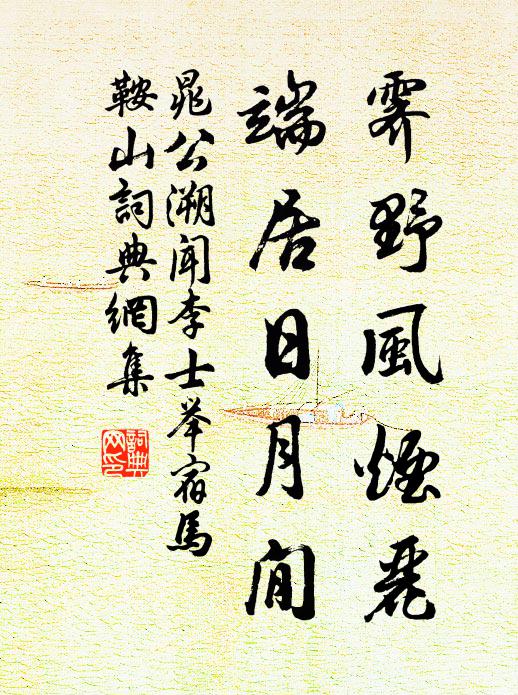 霽野風煙麗
端居日月閒
晁公溯聞李士举宿馬
鞍山詞典網集
詞典
网印